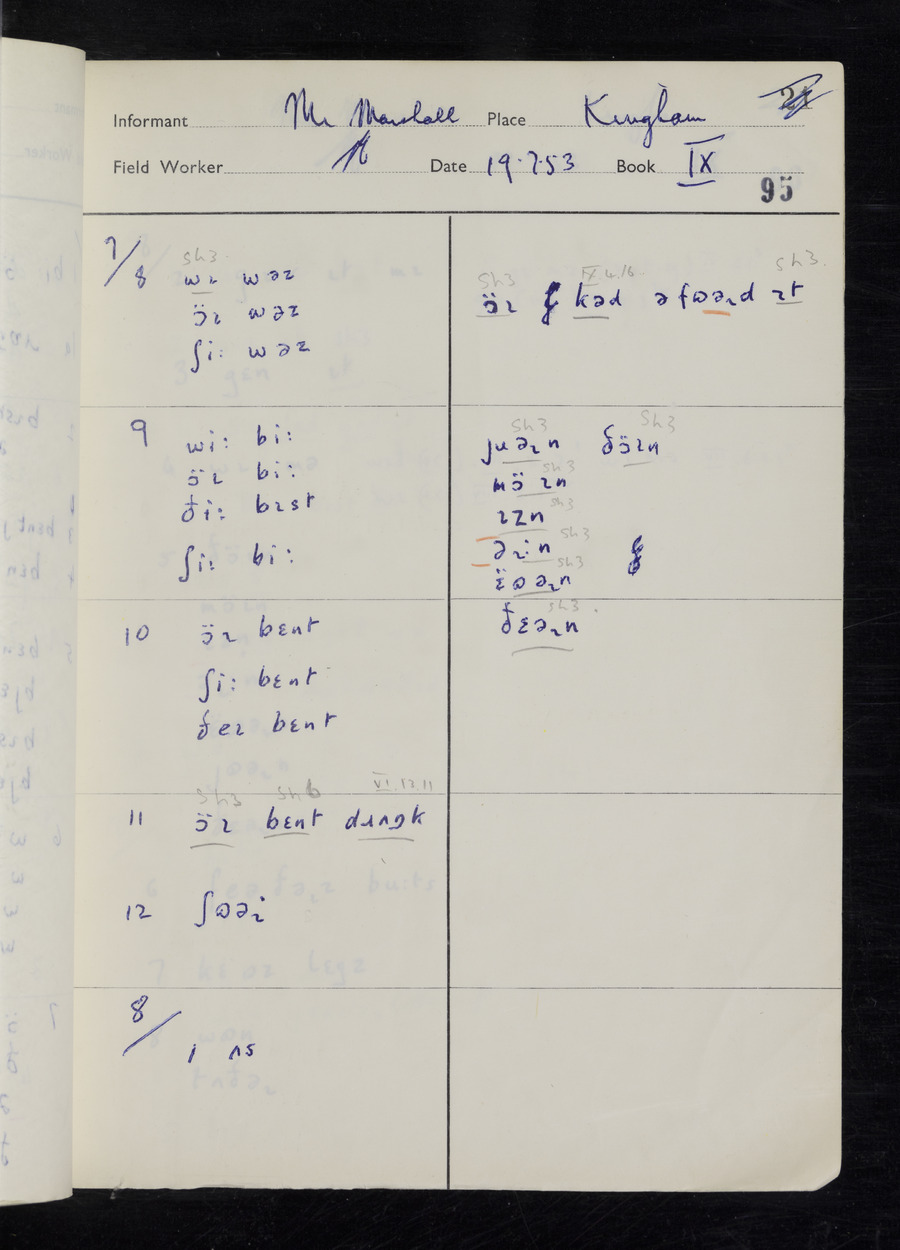 Informant Mr Marshall Place Kingham 21
Field Worker Date 19.7.53 Book IX
95
7/8
sh3.
wɪ wəz
ɔ̈ɪ wəz
ʃi: wəz
sh3 IX 4.16. sh3.
ɔ̈ɪ kəd ɪt
9
wi: bi:
ɔ̈ɪ bi:
ði: bɪst
ʃi: bi:
sh3 sh3
juəɹn ðɔ̈ɪn
sh3
mɔ̈ɪn
sh3
ɪzn
sh3
əɹ:n
sh3
sh3.
ðɛəɹn
10
ɔ̈ɪ bɛnt
ʃi: bɛnt
ðeɪ bɛnt
sh3 sh6 VI.13.11
11 ɔ̈ɪ bɛnt dɹʌŋk
12
8/
1 ʌs